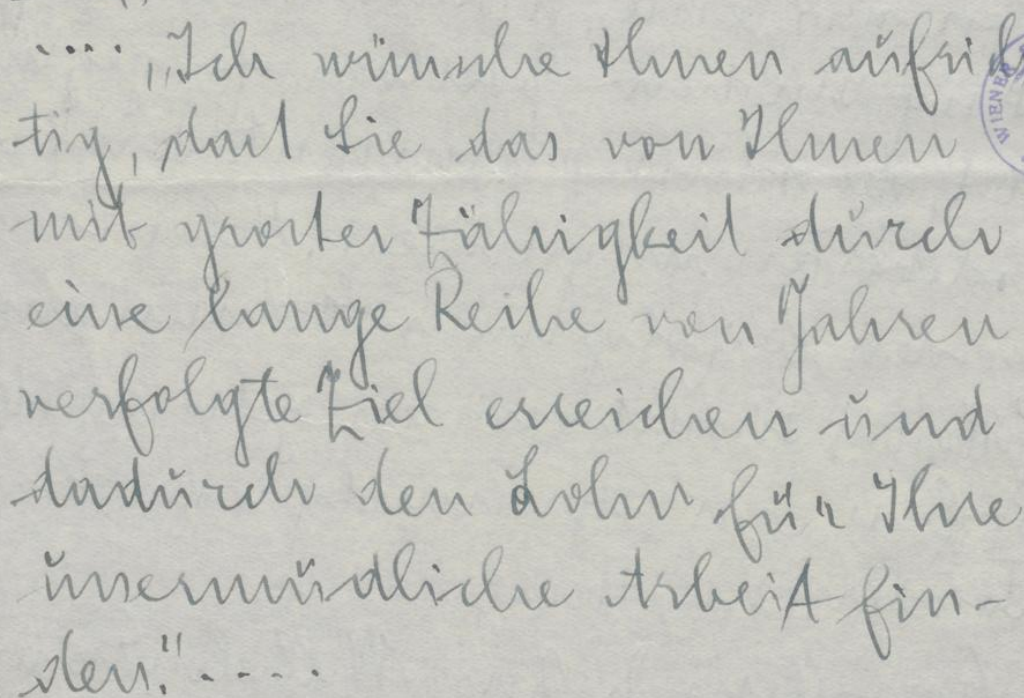 .... „Ich wünsche Ihnen aufrich
tig, daß Sie das von Ihnen
mit großer Zähigkeit durch
eine lange Reihe von Jahren
verfolgte Ziel erreichen und
dadurch den Lohn für Ihre
unermüdliche Arbeit fin-
den." ....
WIENER